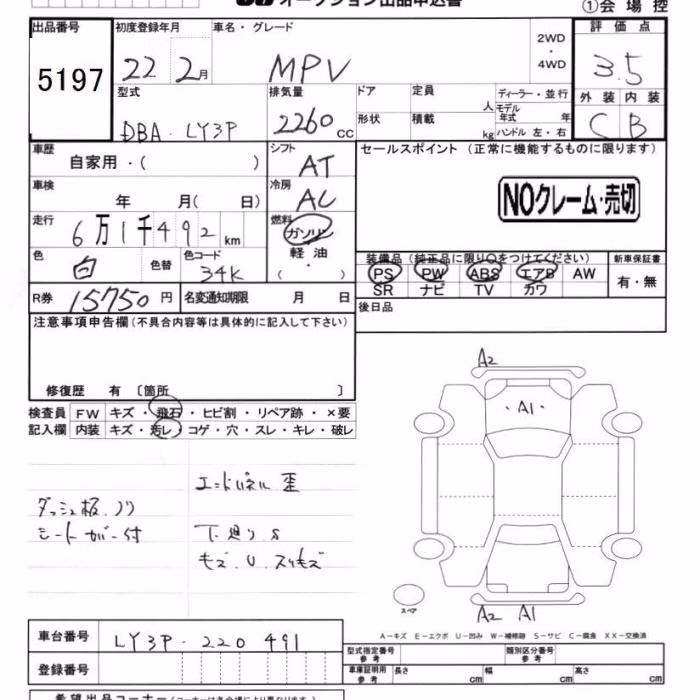 オークション出品申込書
①会場控
出品番号 初度登録年月 車名・グレード 2WD・4WD 評価点
5197 22 2月 MPV 3.5
型式 排気量 ドア 定員 人 ディーラー・並行 外装 内装
DBA・LY3P 2260cc 形状 積載 kg モデル年式 年 ハンドル 左・右 C B
車歴 シフト セールスポイント (正常に機能するものに限ります)
自家用・( ) AT
車検 冷房
年 月( 日) AC
NOクレーム・売切
走行 燃料
6万1千492km ガソリン・軽油・( )
色 色替 色コード 装備品 (純正品に限り○をつけてください) 新車保証書
白 34K PS PW ABS エアB AW 有・無
SR ナビ TV カワ
R券 15750円 名変通知期限 月 日 後日品
注意事項申告欄(不具合内容等は具体的に記入して下さい)
修復歴 有 〔箇所 〕
検査員 FW キズ・飛石・ヒビ割・リペア跡・×要
記入欄 内装 キズ・汚レ・コゲ・穴・スレ・キレ・破レ
エンドパネル 歪
ダッシュ板、ノリ
シートカバー付
下廻り S
キズ、U、スリキズ
A2
・A1
スペア
A2 A1
A-キズ E-エクボ U-凹み W-補修跡 S-サビ C-腐食 XX-交換済
車台番号 LY3P-220491
登録番号
型式指定番号 参考 類別区分番号 参考
車庫証明用 参考 長さ cm 幅 cm 高さ cm
希望出品コーナー